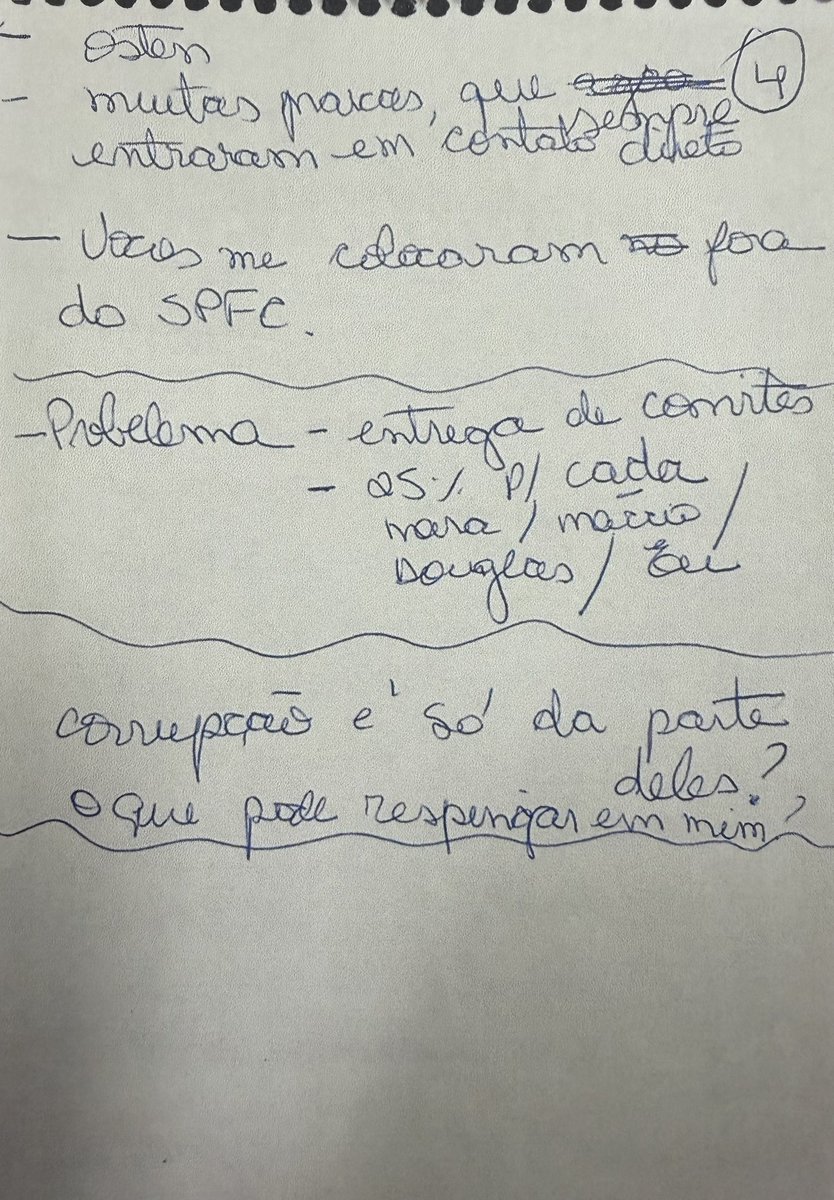 - Osten
- muitas marcas, que sempre 4
entraram em contato direto
- Voces me colocaram fora
do SPFC.
- Probelema - entrega de convites
- 25% P/ cada
mara / márcio /
Douglas / Eu
corrupção é só da parte
deles?
O que pode respingar em mim?